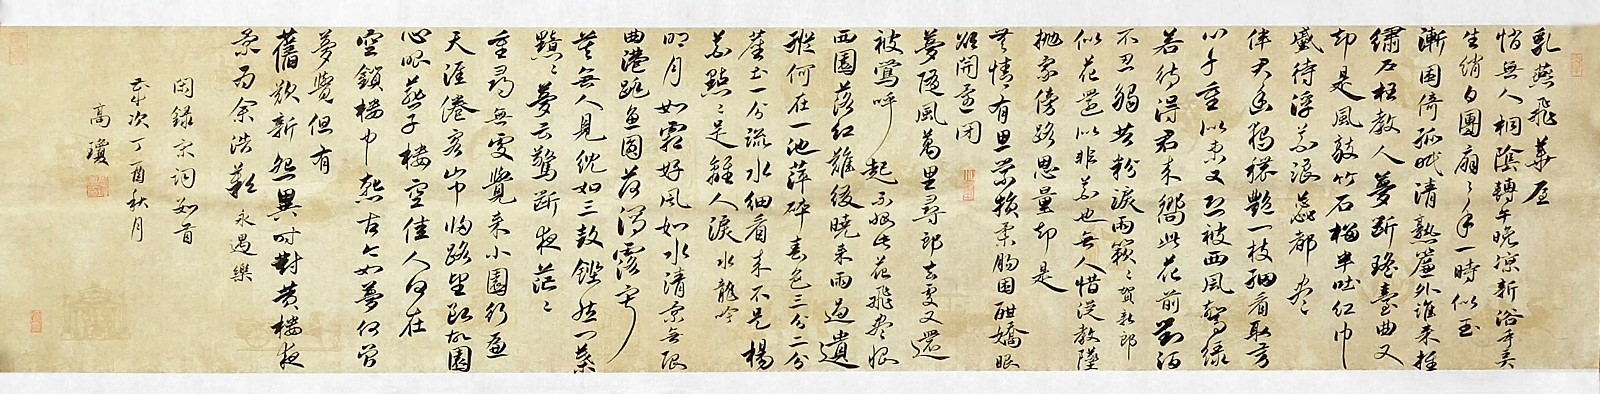 乳燕飛華屋
悄無人桐陰轉午晚涼新浴手弄
生綃白團扇〻手一時似玉
漸困倚孤眠清熟簾外誰來推
繡戶枉教人夢斷瑤臺曲又
却是風敲竹石榴半吐紅巾
蹙待浮花浪蕊都盡
伴君幽獨穠艷一枝細看取芳
心千重似束又恐被西風驚綠
若待得君來嚮此花前對酒
不忍觸共粉淚兩簌〻賀新郎
似花還似非花也無人惜從教墜
拋家傍路思量却是
無情有思縈損柔腸困酣嬌眼
欲開還閉
夢隨風萬里尋郎去處又還
被鶯呼起不恨此花飛盡恨
西園落紅難綴曉來雨過遺
蹤何在一池萍碎春色三分二分
塵土一分流水細看來不是楊
花點〻是離人淚水龍吟
明月如霜好風如水清景無限
曲港跳魚圓荷瀉露寂
寞無人見紞如三鼓鏗然一葉
黯〻夢雲驚斷夜茫〻
重尋無處覺來小園行遍
天涯倦客山中歸路望斷故園
心眼燕子樓空佳人何在
空鎖樓中燕古今如夢何曾
夢覺但有
舊歡新怨異時對黃樓夜
景為余浩歎永遇樂
閑錄宋詞如首
歲次丁酉秋月
高瓊